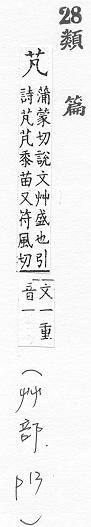 28類
篇
芃
蒲蒙切說文艸盛也引
詩芃芃黍苗又符風切
文一重
音一
(艸部 p13)